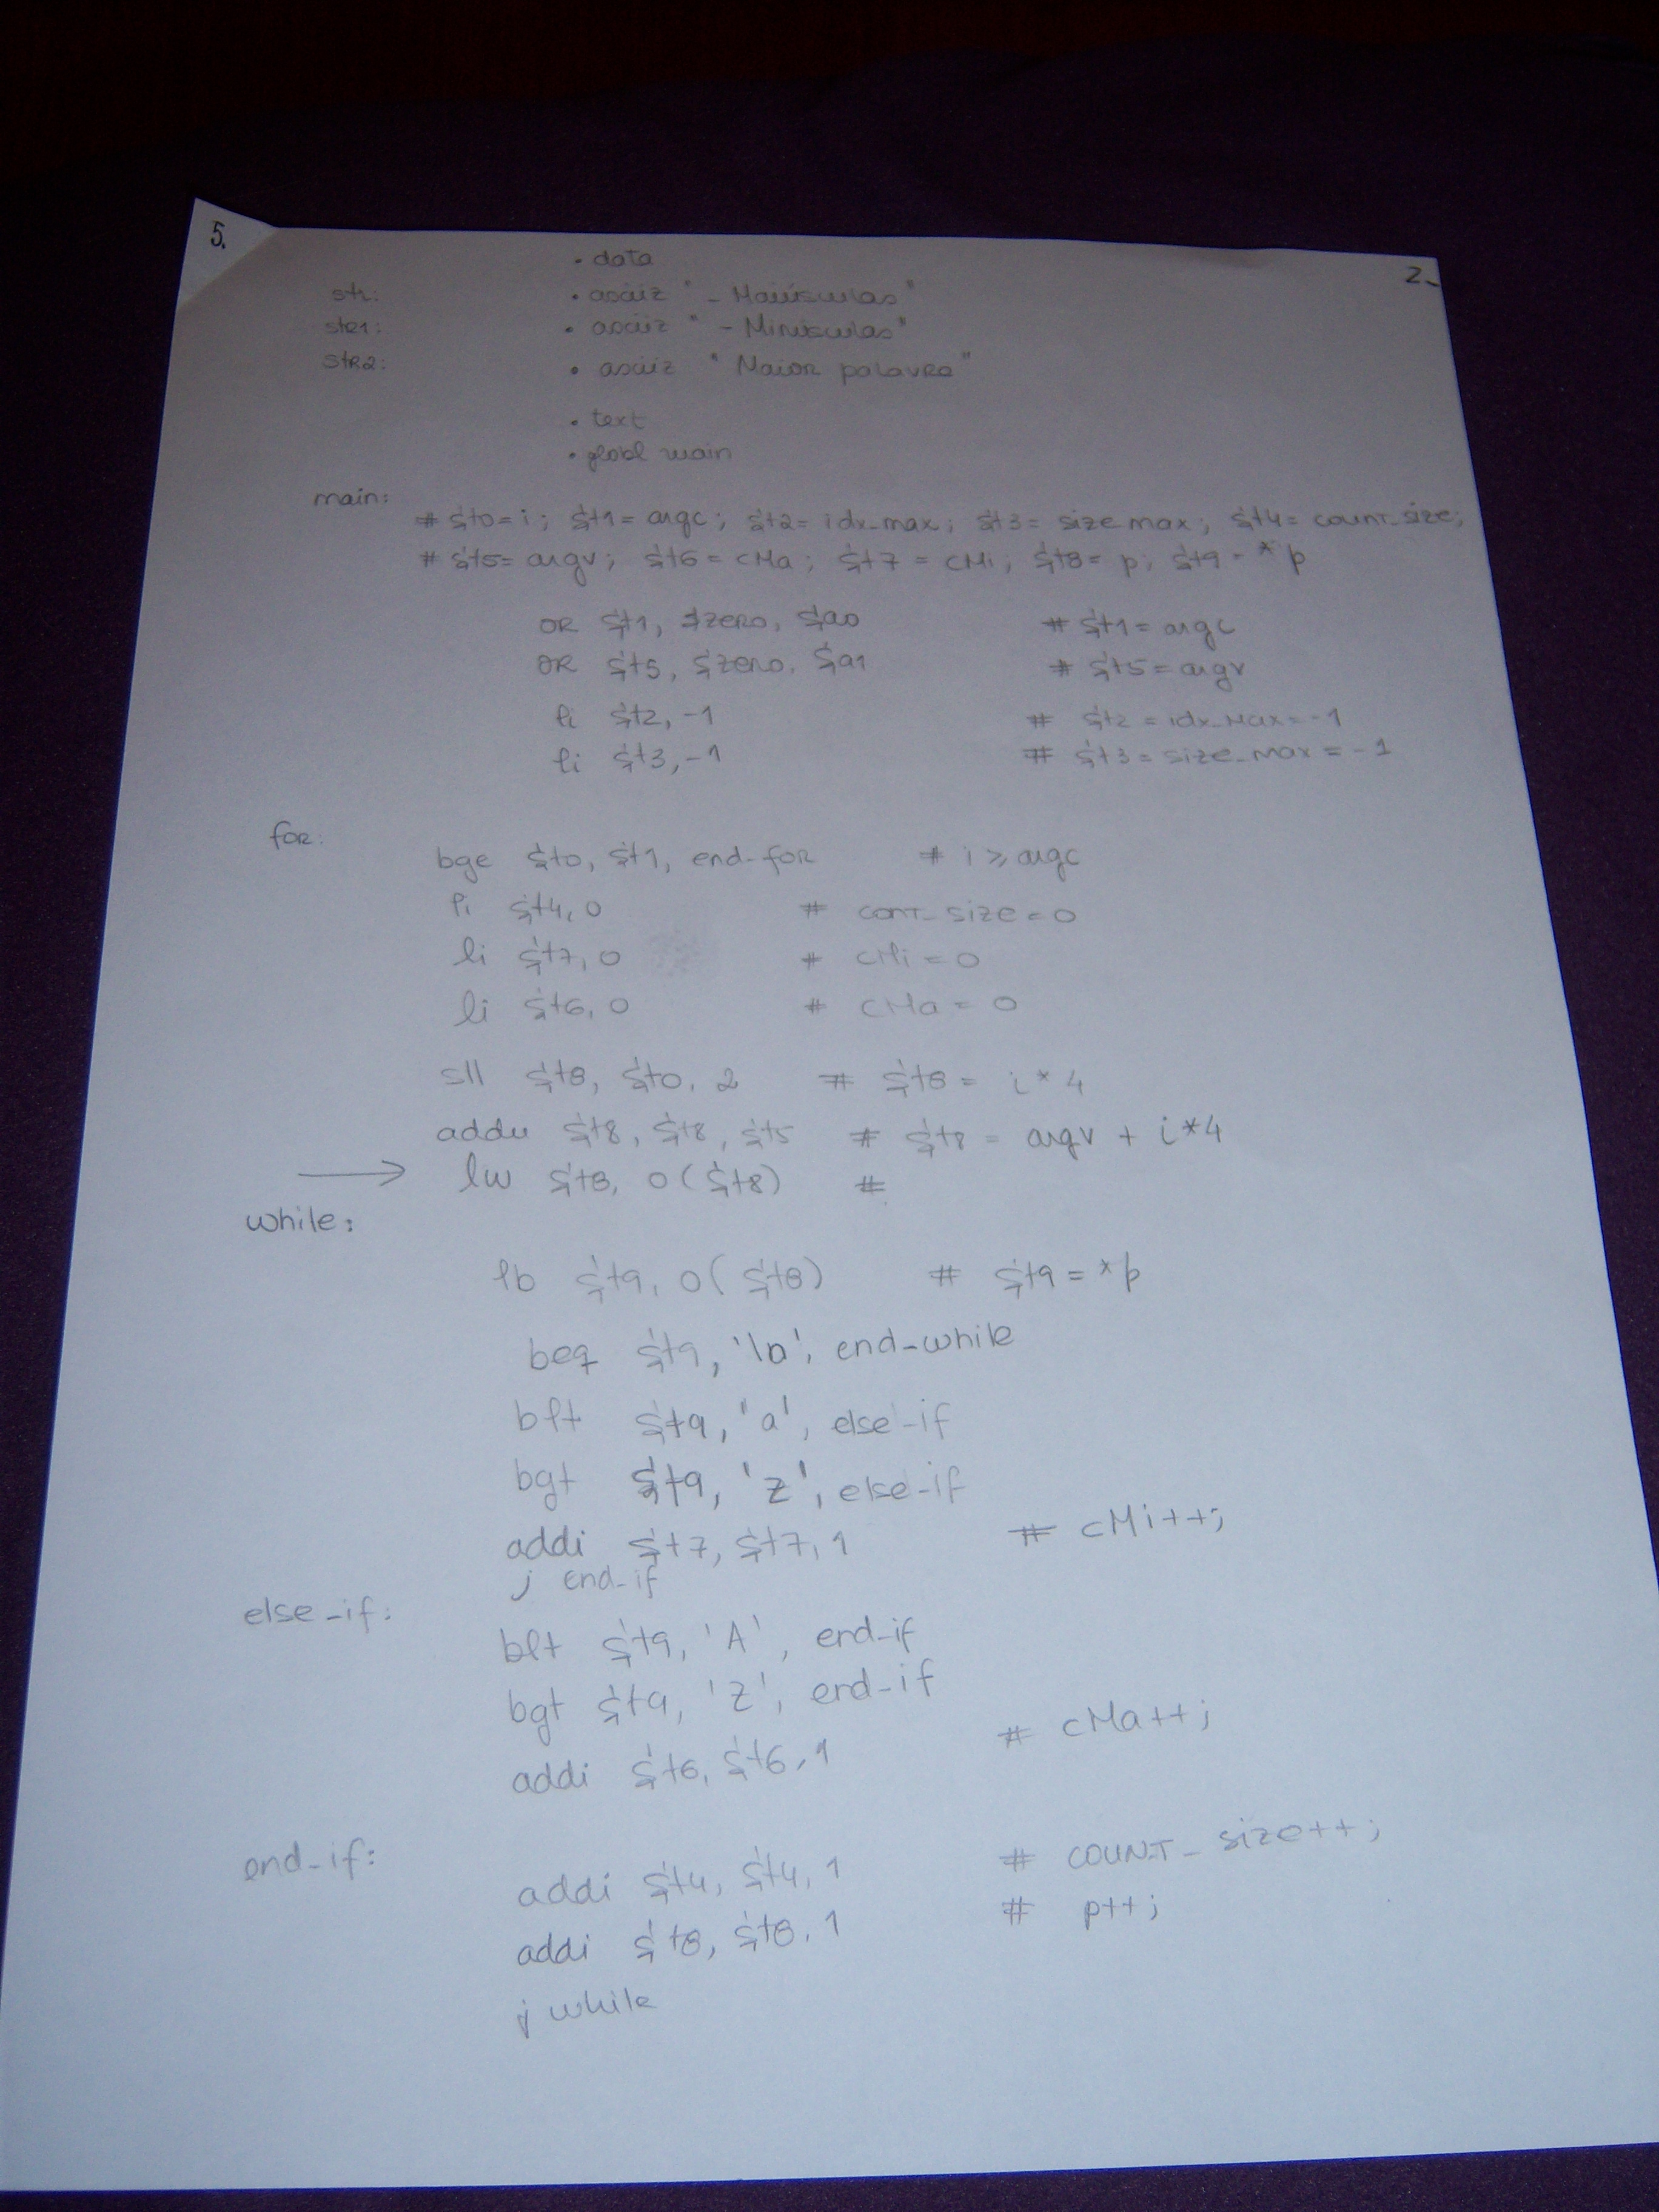 5.
2-
.data
str: .asciiz " - Maiúsculas"
str1: .asciiz " - Minúsculas"
str2: .asciiz "Maior palavra"
.text
.globl main
main:
# $t0=i; $t1=argc; $t2=idx_max; $t3=size_max; $t4=count_size;
# $t5=argv; $t6=cMa; $t7=cMi; $t8=p; $t9=*p
OR $t1, $zero, $a0 # $t1=argc
OR $t5, $zero, $a1 # $t5=argv
li $t2,-1 # $t2=idx_max=-1
li $t3,-1 # $t3=size_max=-1
for:
bge $t0, $t1, end-for # i ≥ argc
li $t4, 0 # cont_size=0
li $t7, 0 # cMi=0
li $t6, 0 # cMa=0
sll $t8, $t0, 2 # $t8 = i*4
addu $t8, $t8, $t5 # $t8 = argv + i*4
→ lw $t8, 0($t8) #
while:
lb $t9, 0($t8) # $t9=*p
beq $t9, '\0', end-while
blt $t9, 'a', else-if
bgt $t9, 'z', else-if
addi $t7, $t7, 1 # cMi++;
j end-if
else-if:
blt $t9, 'A', end-if
bgt $t9, 'Z', end-if
addi $t6, $t6, 1 # cMa++;
end-if:
addi $t4, $t4, 1 # count_size++;
addi $t8, $t8, 1 # p++;
j while